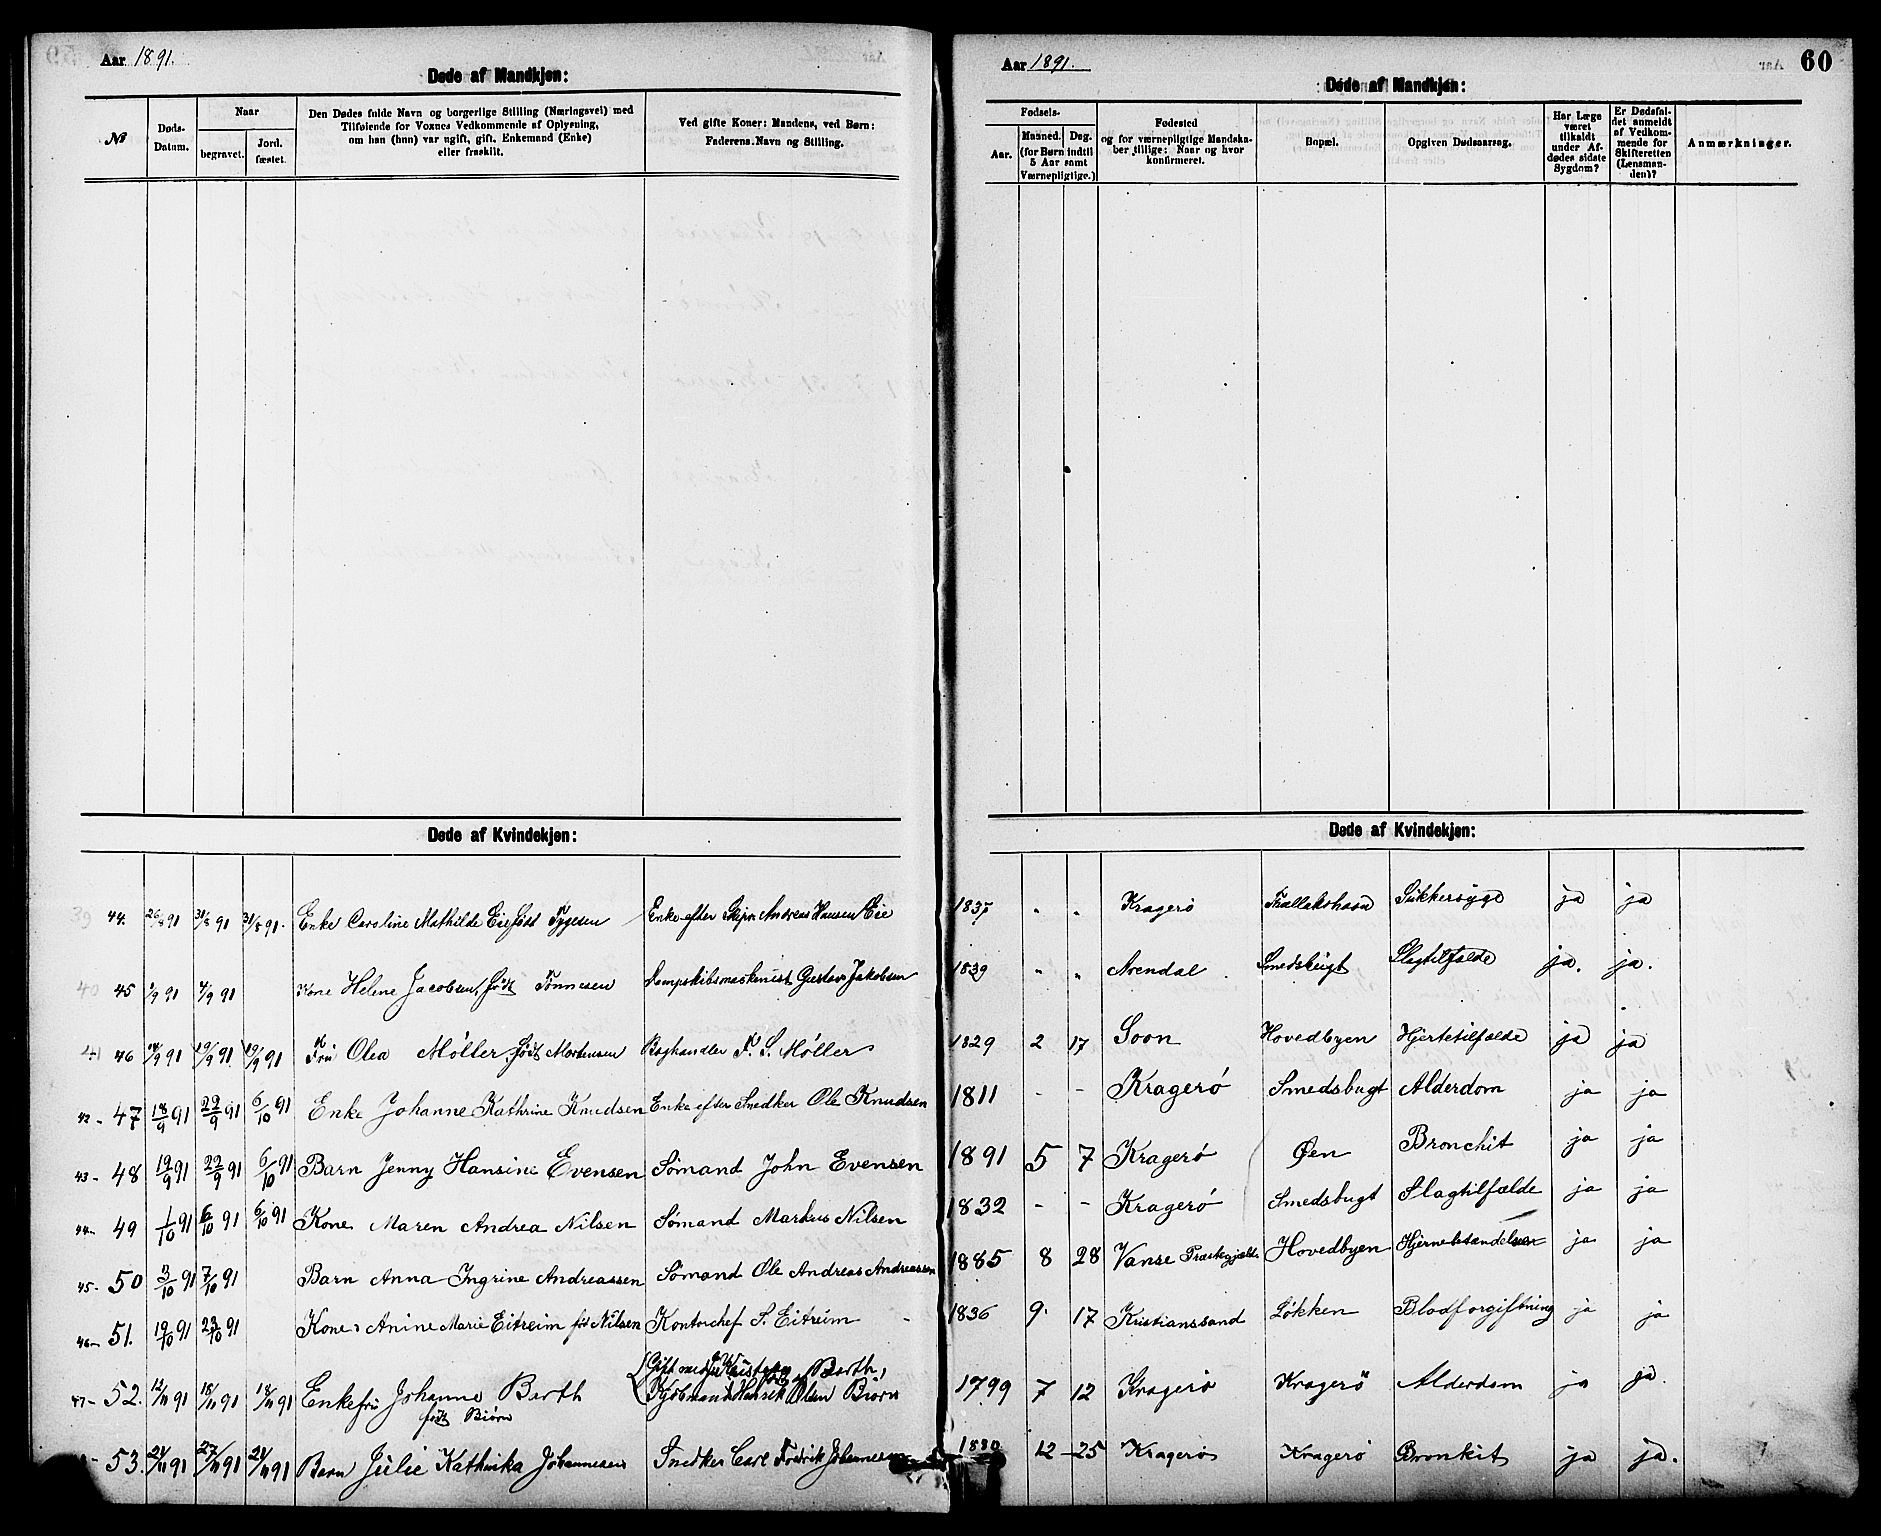 Aar 1891.
Døde af Mandkjøn:
№
Døds-
Datum.
Naar
begravet.
Jord-
fæstet.
Den Dødes fulde Navn og borgerlige Stilling (Næringsvei) med
Tilføiende for Voxnes Vedkommende af Oplysning,
om han (hun) var ugift, gift, Enkemand (Enke)
eller fraskilt.
Ved gifte Koner: Mandens, ved Børn:
Faderens Navn og Stilling.
Aar 1891.
60
Døde af Mandkjøn:
Fødsels-
Aar.
Maaned. Dag.
(for Børn indtil
5 Aar samt
Værnepligtige.)
Fødested
og for værnepligtige Mandska-
ber tillige: Naar og hvor
konfirmeret.
Bopæl.
Opgiven Dødsaarsag.
Har Læge
været
tilkaldt
under Af-
dødes sidste
Sygdom?
Er Dødsfal-
det anmeldt
af Vedkom-
mende for
Skifteretten
(Lensman-
den)?
Anmærkninger.
Døde af Kvindekjøn:
Døde af Kvindekjøn:
39 44. 26/8 91 31/8 91 31/8 91. Enke Caroline Mathilde Eie født Tygesen Enke efter Skipr. Andreas Hansen Eie 1837 " " Kragerø Sukkersyge ja ja
40 45 2/9 91 4/9 91 Kone Helene Jacobsen, født Tønnesen Dampskibsmaskinist Gustav Jakobsen 1839 " " Arendal Smedsbugt Slagtilfælde ja. ja.
41 46 14/9 91 19/9 91 19/9 91 Fru Olea Møller, født Mortensen Boghandler S. Møller 1829 2 17 Soon Hovedbyen Hjertetilfælde ja ja
42- 47 18/9 91 22/9 91 6/10 91 Enke Johanne Kathrine Knudsen Enke efter Snedker Ole Knudsen 1811 - - Kragerø Smedsbugt Alderdom ja ja
43- 48 19/9 91 22/9 91 6/10 91 Barn Jenny Hansine Evensen Sømand John Evensen 1891 5 7 Kragerø Øen Bronchit ja ja
44- 49 1/10 91 6/10 91 6/10 91 Kone Maren Andrea Nilsen Sømand Markus Nilsen 1832 - - Kragerø Smedsbugt Slagtilfælde ja ja
45- 50 3/10 91 7/10 91 Barn Anna Ingrine Andreassen Sømand Ole Andreas Andreassen 1885 8 28 Vanse Præstegjæld Hovedbyen Hjernebetændelse ja ja
46- 51. 19/10 91 23/10 91 Kone Anine Marie Eitreim fød Nilsen Kontorchef S. Eitreim 1836 9 17 Kristianssand Løkken Blodforgiftning ja ja
47- 52. 12/11 91 18/11 91 18/11 91 Enkefru Johanne Barth
født Biørn
(Gift med Barth,
Kjøbmand Henrik Olsen Biørn 1799 7 12 Kragerø Kragerø Alderdom ja ja.
53. 21/11 91 27/11 91 Barn Julie Kathinka Johannesen Snedker Carl Fredrik Johannesen 12 -25 Kragerø Kragerø Bronkit ja ja.